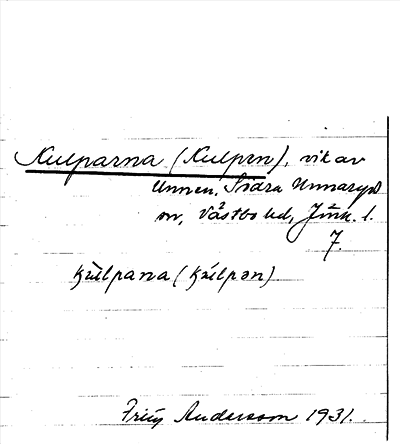 Kulparna (Kulpen), vik av
Unnen, Södra Unnaryd
sn, Västbo hd, Jönk. l.
7.
kùlpana (kúlpən)
Andersson 1931.